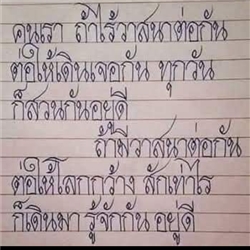 คนเรา ถ้าไร้วาสนาต่อกัน
ต่อให้เดินเจอกัน ทุกวัน
ก็สวนกันอยู่ดี
ถ้ามีวาสนาต่อกัน
ต่อให้โลกกว้าง สักเท่าไร
ก็เดินมา รู้จักกัน อยู่ดี